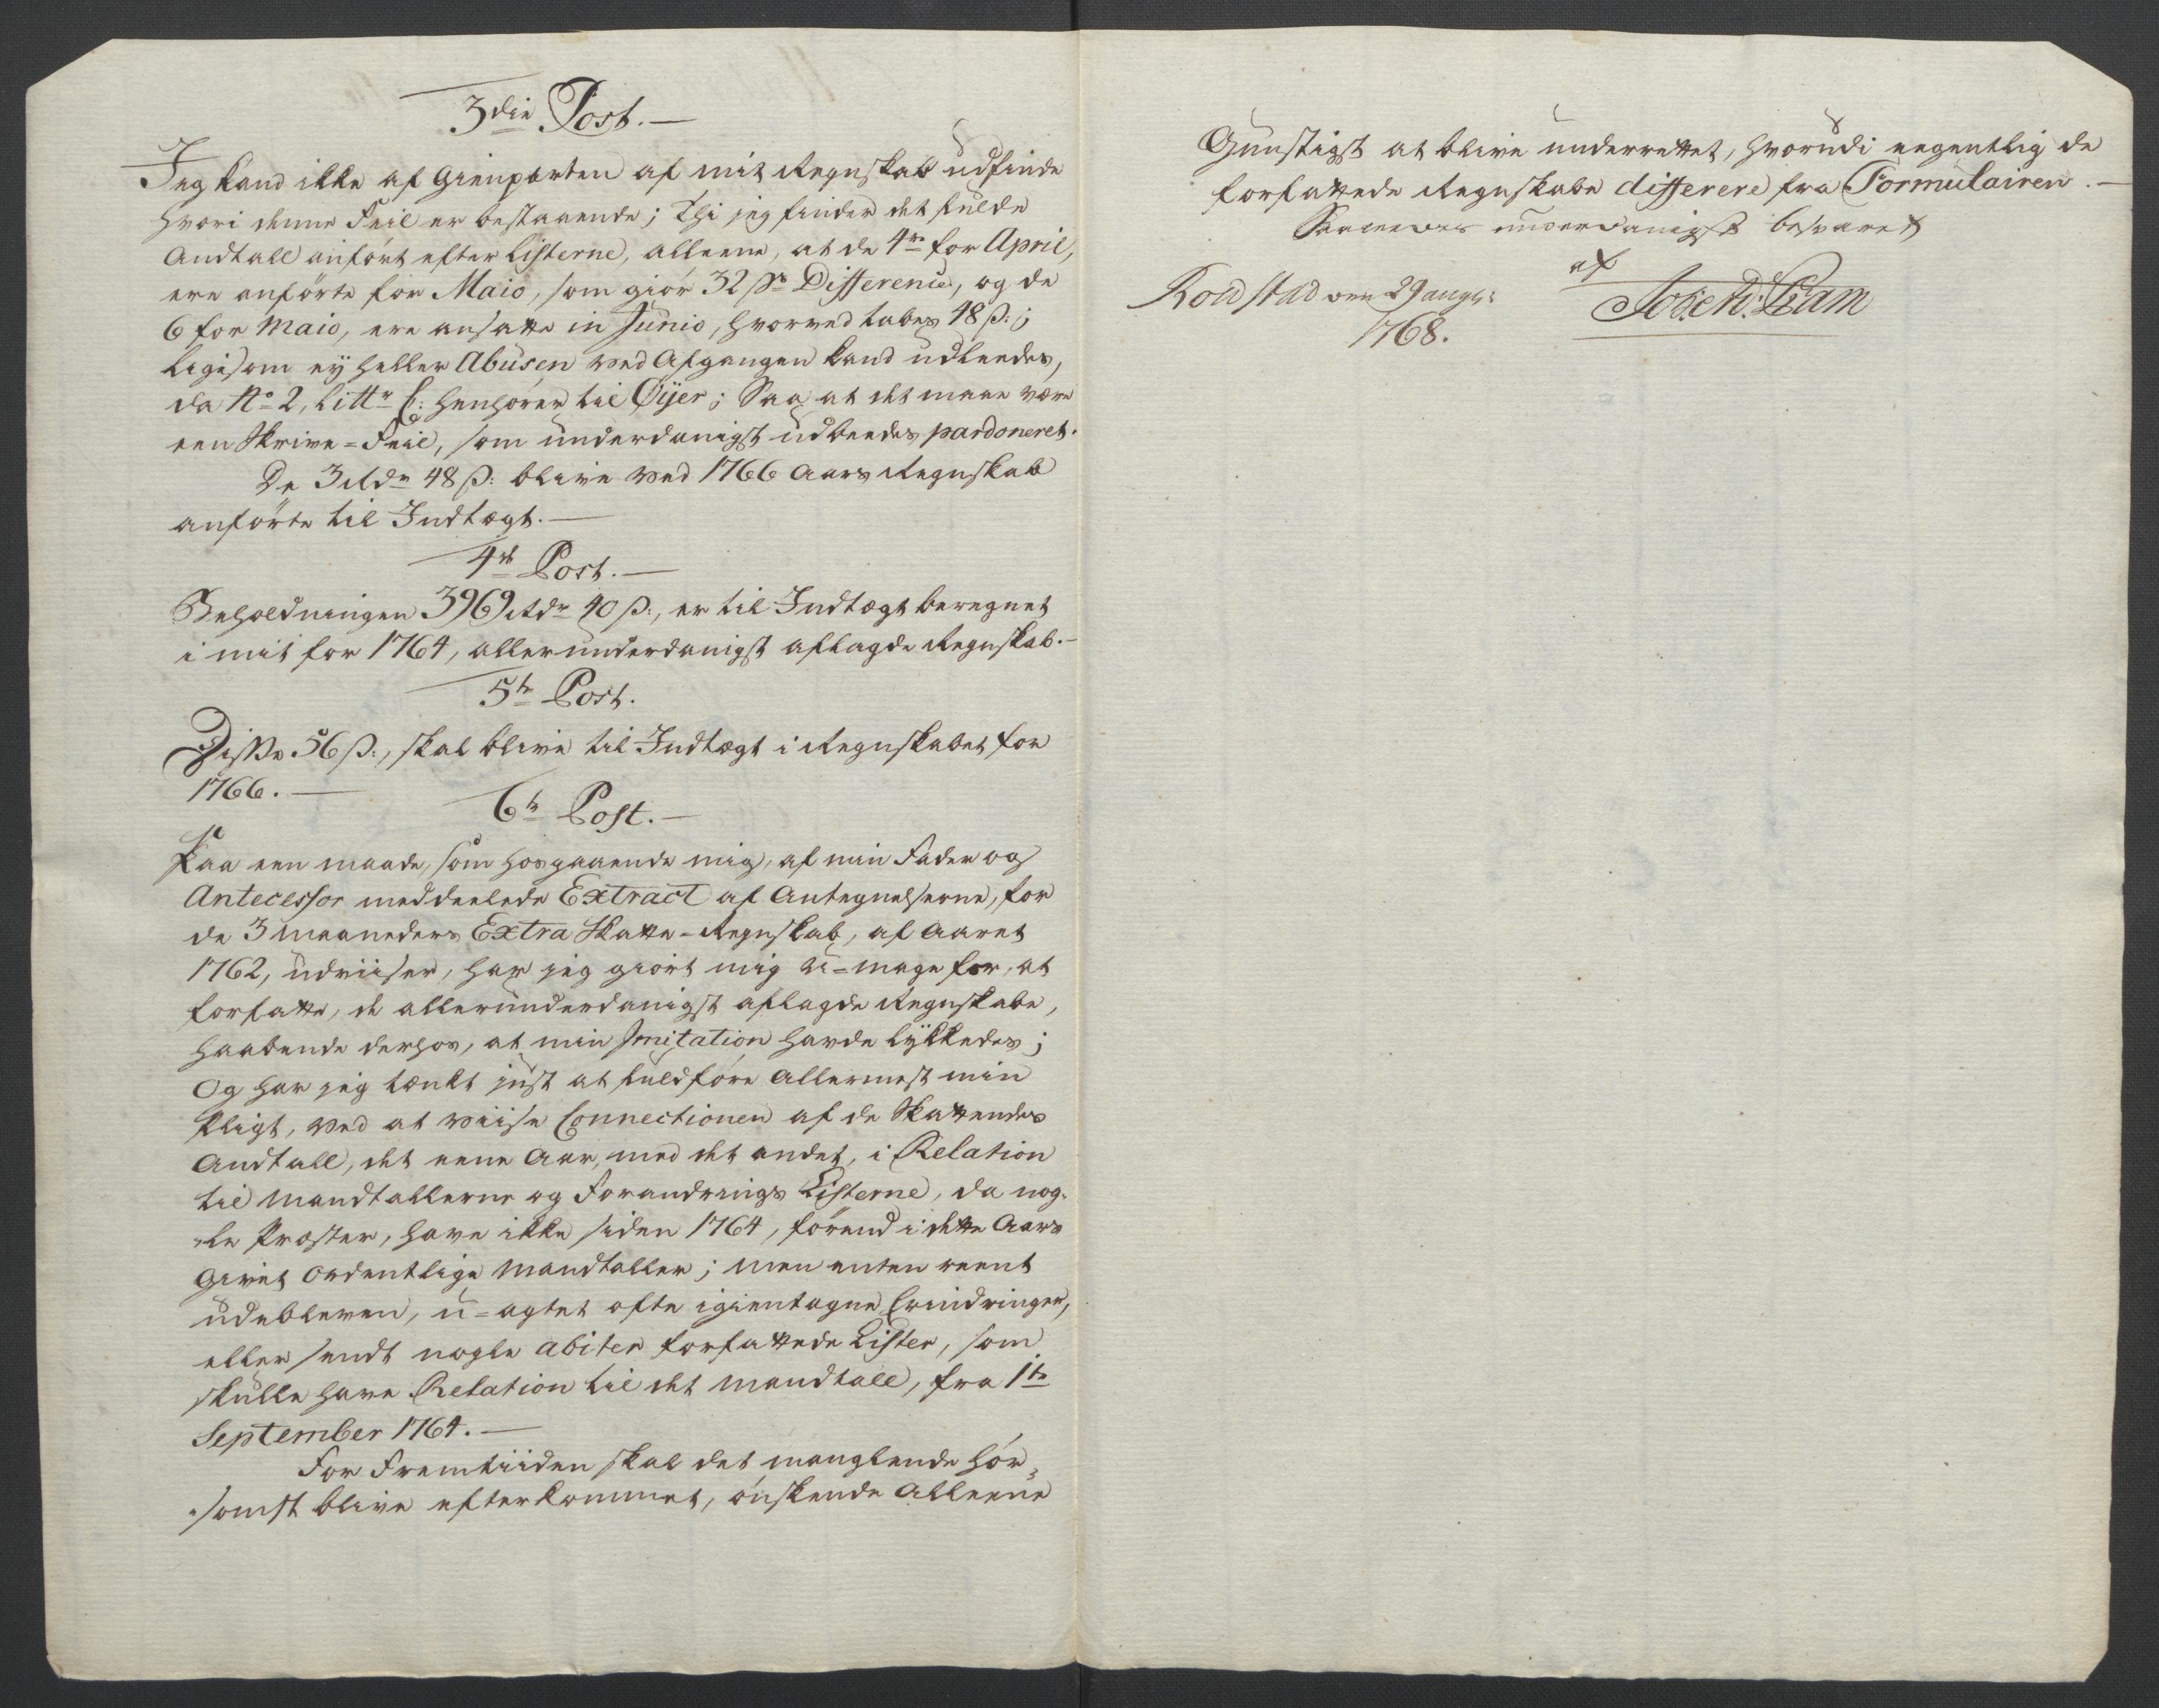 3die Post.—
Jeg kand ikke af Gienparten af mit Regnskab udfinde
hvori denne Feil er bestaaende; thi jeg finder det fulde
Andtall anfört efter Listerne, alleene, at de 4re for April,
ere anförte for Maio, som giör 32 ß Difference, og de
6 for Maio, ere ansatte in Junio, hvorved tabes 48 ß:;
Ligesom ey heller Abusen ved Afgangen kand udleedes,
da No 2, Littr C: henhörer til Öijer; Saa at det maae være
een Skrive-Feil, som underdanigst udbeedes pardoneret.
De 3 Rdr 48 ß: blive ved 1766 Aars Regnskab
anförte til Indtægt.—
4de Post.—
Beholdningen 3969 Rdr 40 ß:, er til Indtægt beregnet
i mit for 1764, allerunderdanigst aflagde Regnskab.—
5te Post.
Disse 56 ß:, skal blive til Indtægt i Regnskabet for
1766.—
6te Post.—
Paa een maade, som hosgaaende mig, af min Fader og
Antecessor meddeelede Extract af Antegnelserne, for
de 3 Maaneders Extra Skatte-Regnskab, af Aaret
1762, udviiser, har jeg giört mig U-mage for, at
forfatte, de allerunderdanigst aflagde Regnskabe,
haabende derhos, at min Imitation havde lÿkkedes;
Og har jeg tænkt just at fuldföre Allermest min
Pligt, ved at viise Connectionen af de Skattendes
Andtall, det eene Aar, med det andet, i Relation
til Mandtallerne og Forandrings Listerne, da nog-
-le Præster, have ikke siden 1764, förend i dette Aars
Givet Ordentlige Mandtaller; men enten reent
udebleven, u-agtet ofte igientagne Erindringer,
eller sendt nogle abiter forfattede Lister, som
skulle have Relation til det Mandtall, fra 1te
September 1764.—
For Fremtiiden skal det manglende hör-
-somst blive efterkommet, önskende Alleene
Gunstigst at blive underrettet, hvorudi eegentlig de
forfattede Regnskabe differere fra Formulairen.—
Saaledes underdanigst besvaret
af
den 29 aug:
1768.